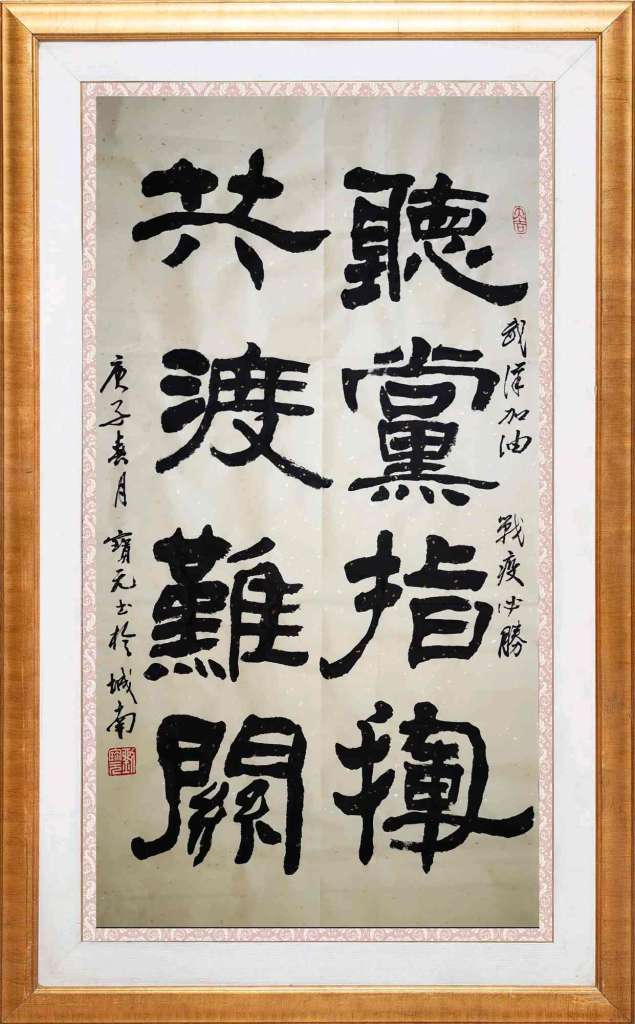 聽黨指揮
共渡難關
武漢加油 戰疫必勝
庚子春月 寶元书於城南